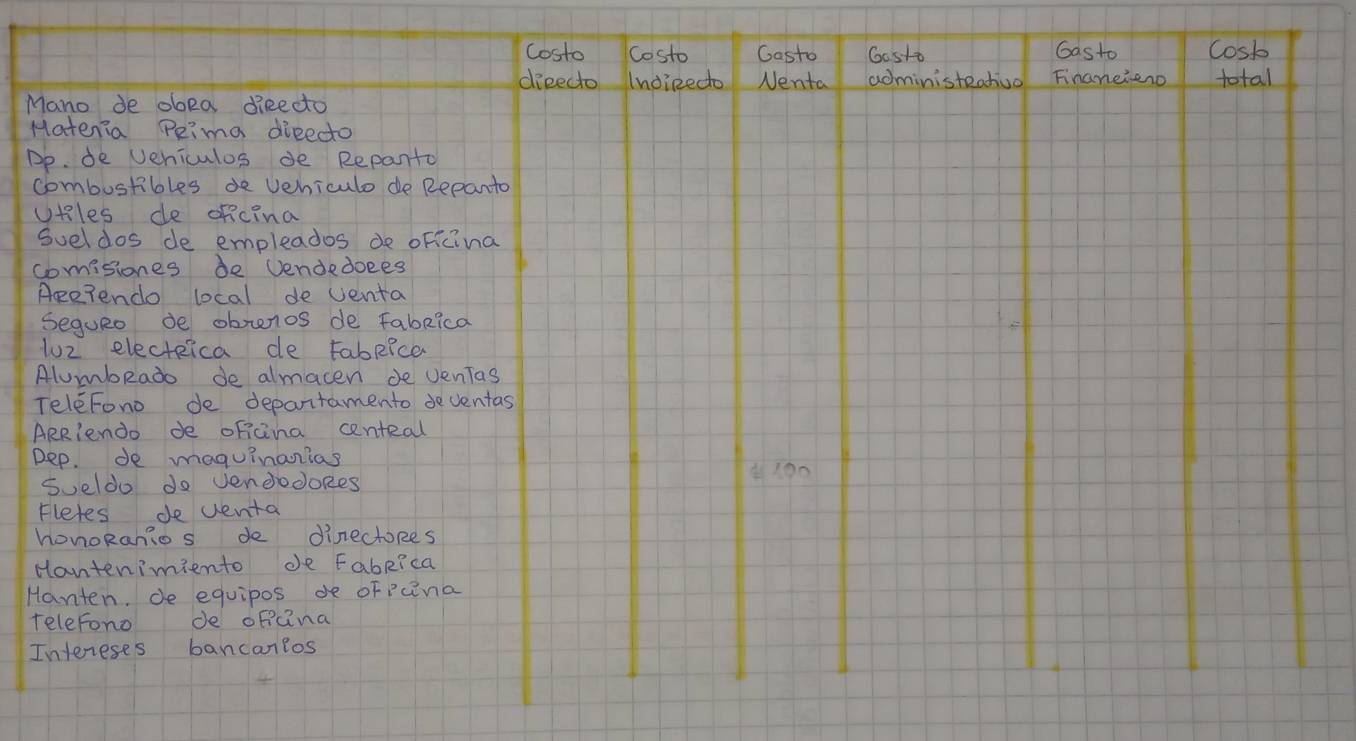 Costo Costo Gasto Gasto Gasto Costo
directo Indirecto Venta administrativo Financiero total
Mano de obra directo
Materia Prima directo
Dp. de vehiculos de Reparto
Combustibles de vehiculo de Reparto
Utiles de oficina
Sueldos de empleados de oficina
comisiones de vendedores
Arriendo local de venta
Seguro de obreros de Fabrica
luz electrica de Fabrica
Alumbrado de almacen de ventas
Teléfono de departamento de ventas
Arriendo de oficina central
Dep. de maquinarias
Sueldo de vendodores
Fletes de venta
honorarios de directores
Mantenimiento de Fabrica
Manten. de equipos de oficina
Telefono de oficina
Intereses bancarios